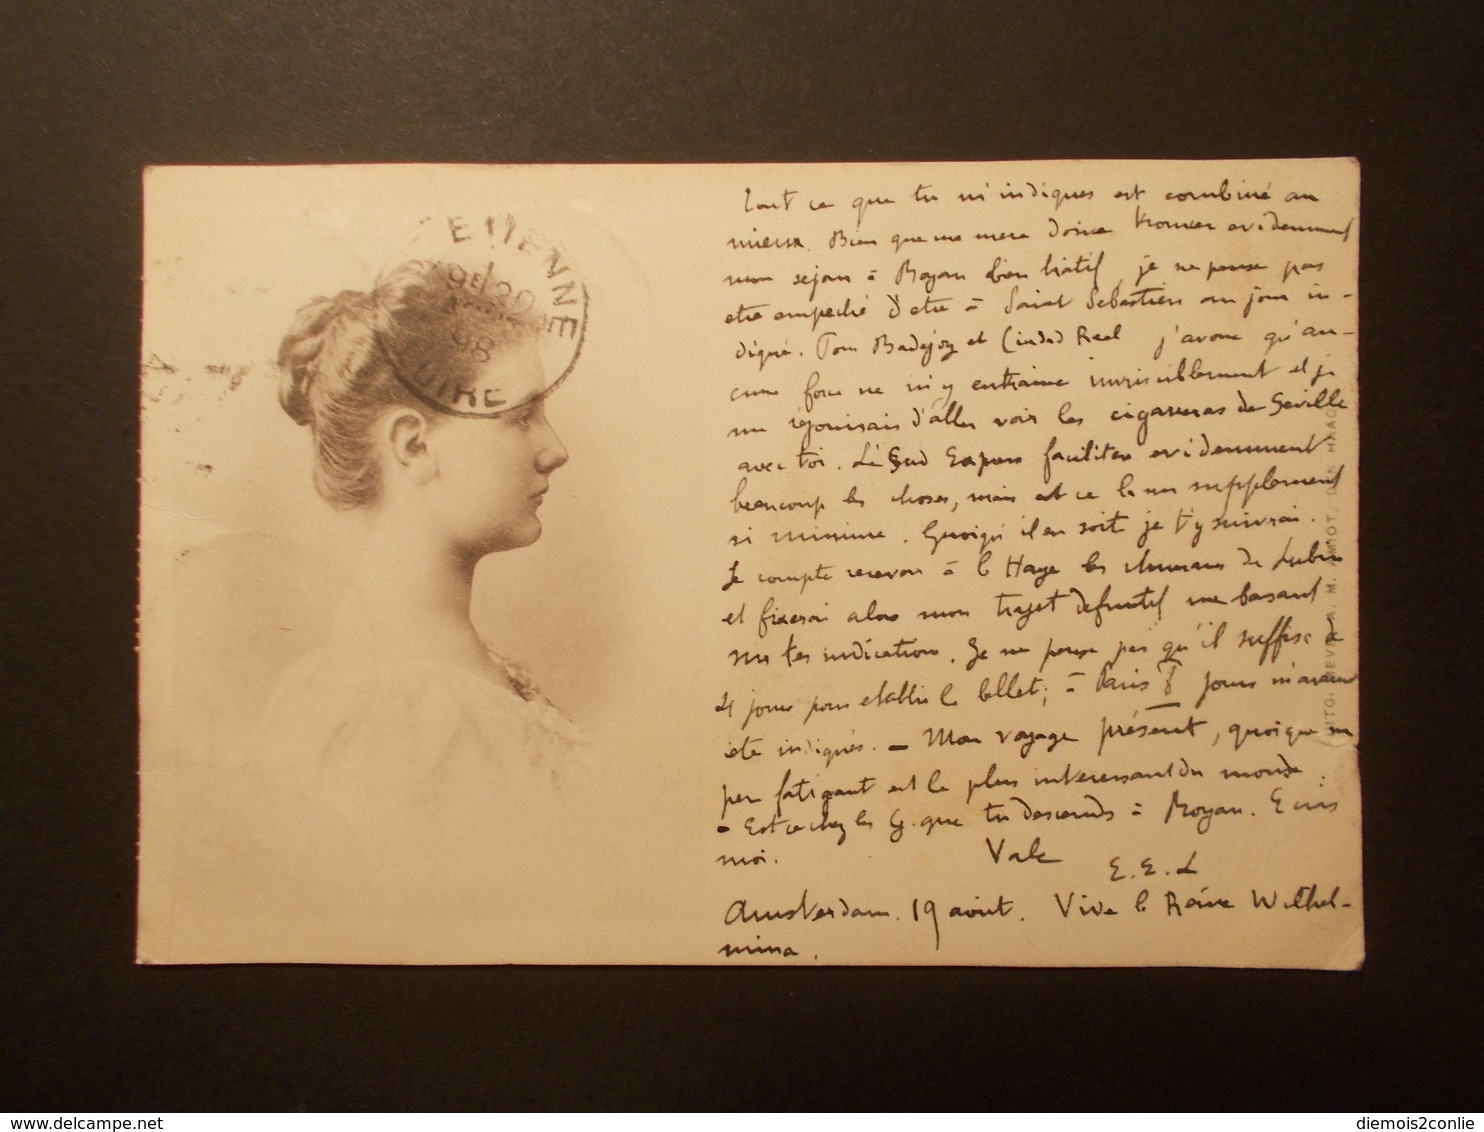 ETIENNE
20
98
LOIRE
Tout ce que tu m'indiques est combiné au
mieux. Bien que ma mere doive trouver evidemment
mon sejour à Royan bien hatif, je ne pense pas
etre empeché d'etre à Saint Sebastien au jour in-
diqué. Pour Badajoz et Ciudad Real j'avoue qu'au-
cune force ne m'y entraine invinciblement et je
me rejouirais d'aller voir les cigarreras de Seville
avec toi. Le Sud Express facilitera evidemment
beaucoup les choses, mais est ce le un supplement
si minime. Quoiqu'il en soit je t'y suivrai.
Je compte recevoir à la Haye les de Lubin
et fixerai alors mon trajet definitif me basant
sur tes indication. Je ne pense pas qu'il suffise de
4 jours pour etablir le billet; à Paris 8 jours m'avaient
été indiqués. – Mon voyage présent, quoique un
peu fatigant est le plus interessant du monde.
– Est ce chez les G. que tu descends à Royan. Ecris
moi. Vale E. E. L
Amsterdam. 19 aout. Vive la Reine Wilhel-
mina.
UITG. A. M. AMIOT, DEN HAAG
delcampe.net
diemois2conlie